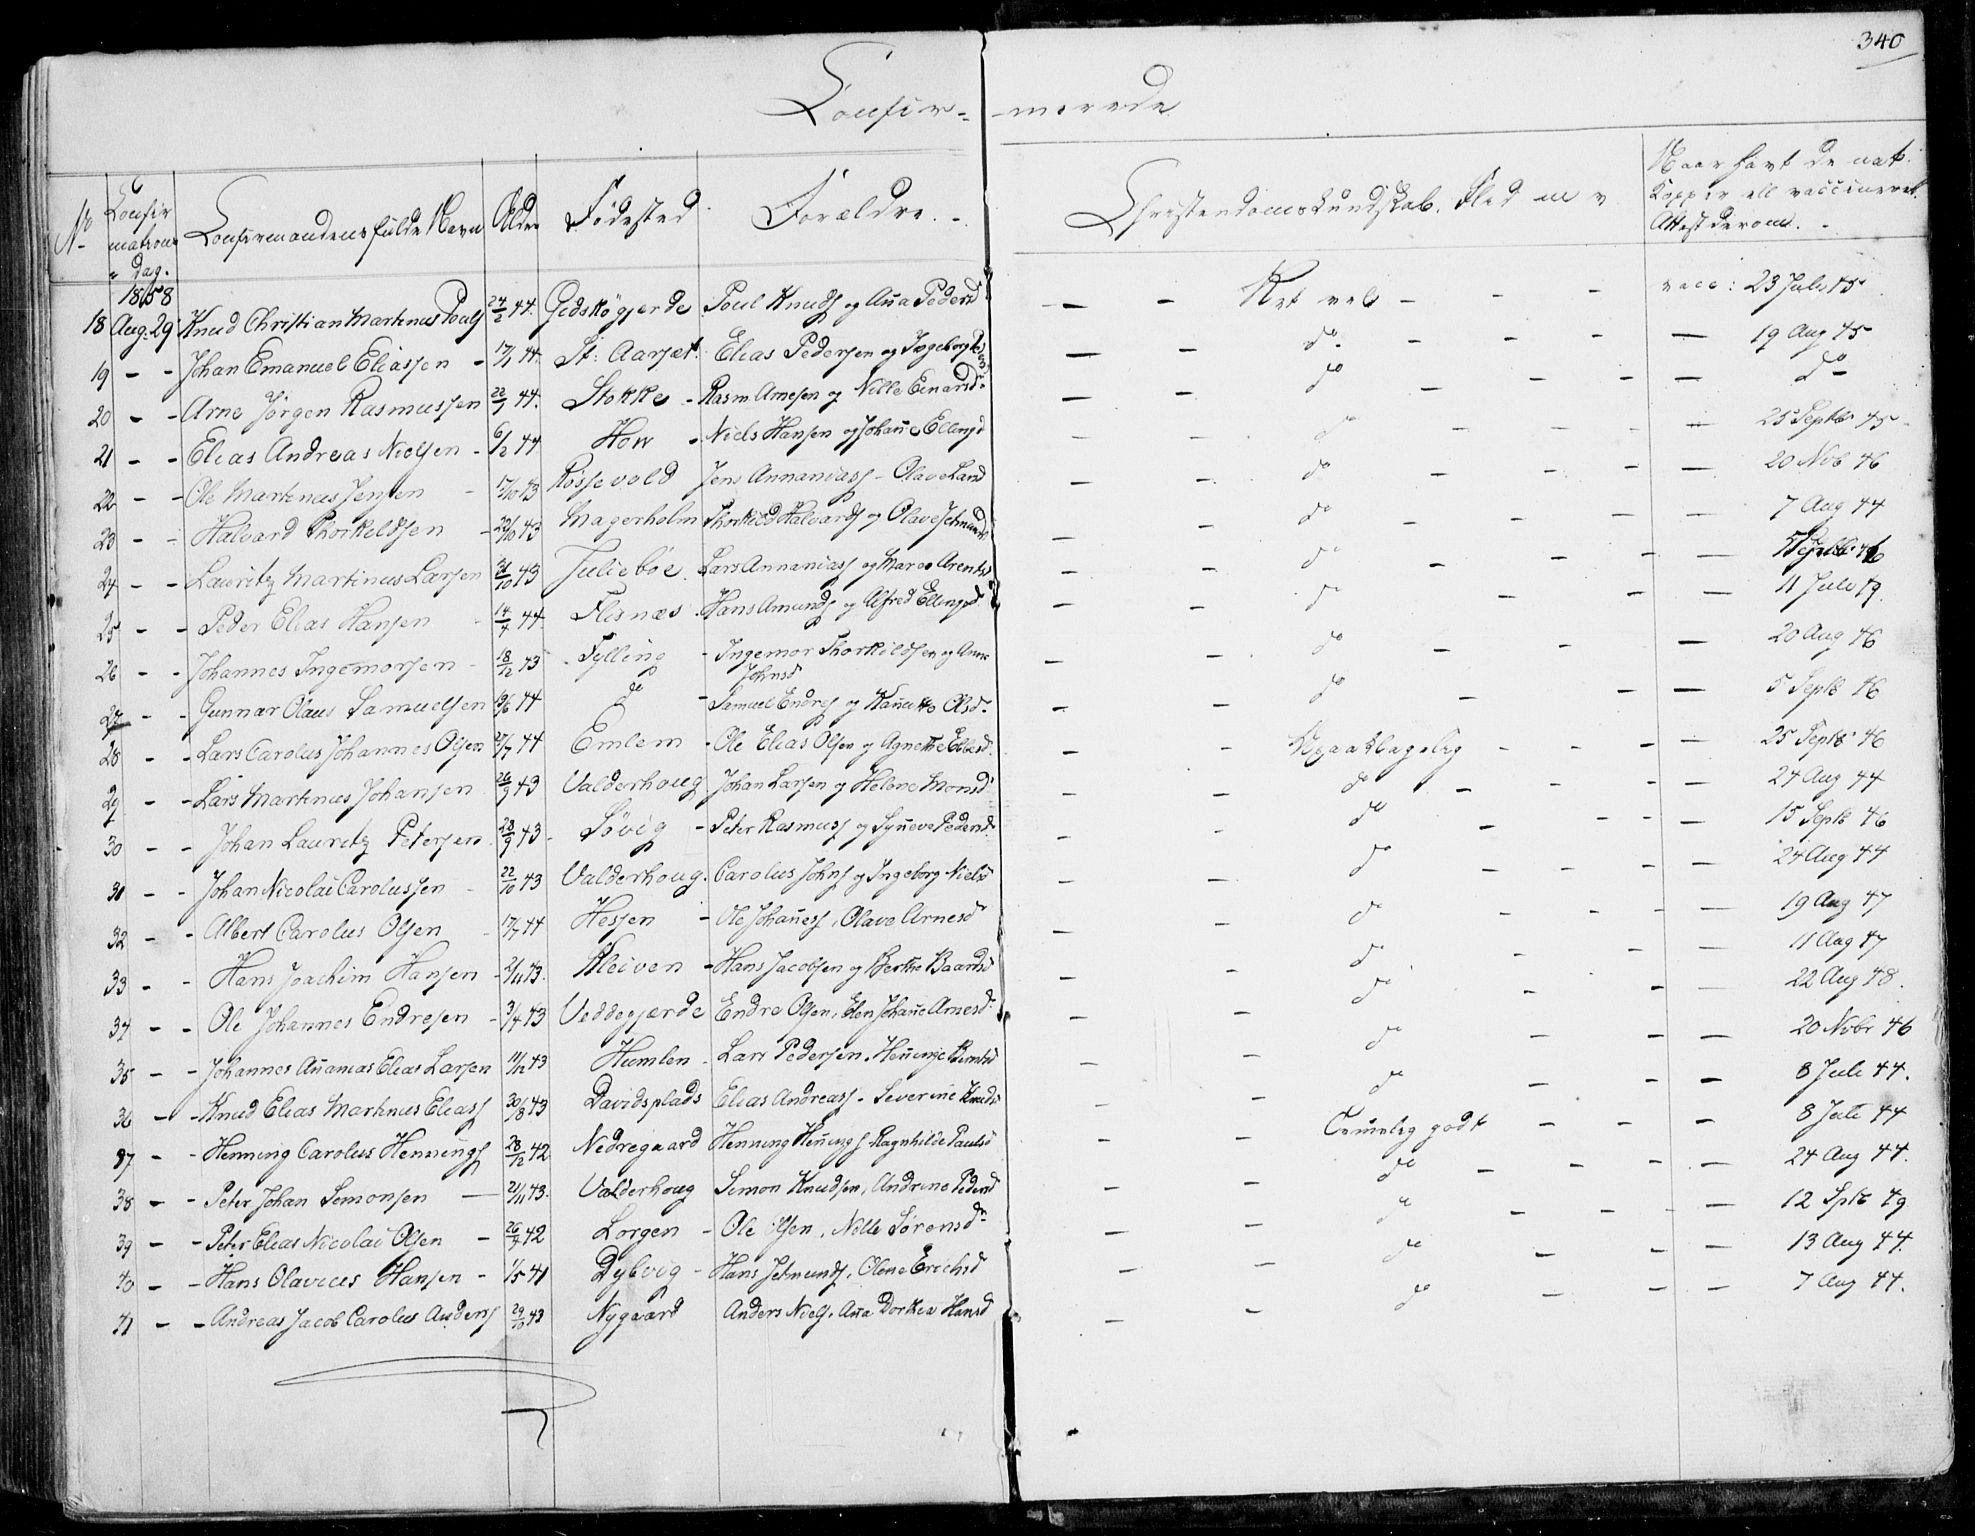 340
Confir- -merede
No
Confirmations dag.
Confirmandens fulde Navn
Alder
Fødested
Forældre.
Christendomskundskab, Flid m v
Naar havt de nat. Kopper ell vaccineret. Attest derom.
1858
18 Aug. 29 Knud Christian Martinus Pouls 24/2 44. Gidskøgjerde Poul Knuds og Aña Pedersd - - Ret vel - - - vacc: 23 Juli 45
19 - - Johan Emanuel Eliassen - 17/1 44. St. Aarsæt. Elias Pedersen og Ingeborg - - do - - - 19 Aug 45
20 - - Arne Jørgen Rasmussen 22/1 44. Stokke - Rasm Arnesen og Nille Einarsd - - do - - - - do
21 - - Elias Andreas Nielsen - 6/2 44 How - Niels Hansen og Johañe Ellingsd - - do - - - - 25 Septb 45
22 - - Ole Martinus Jensen - 17/10 43 Røssevold Jens Annanias - Olave Lasd - - do - - - 20 Nob 46
23 - - Halvard Thorkeldsen - 29/10 43 Magerholm Thorkild Halvards og Olave Jetmunds - - do - - - - 7 Aug 44
24 - - Lauritz Martinus Larsen 31/10 43 Juliebøe. Lars Annanias og Maren Arentsd - - do - - - - Septb 46
25 - - Peder Elias Hansen - 14/4 44. Flisnæs. Hans Amunds og Alfred Ellingsd. - - do - - - 11 Juli 49.
26 - - Johannes Ingemorsen - 18/12 43 - Fylling - Ingemor Thorkildsen og Anne Johnsd - - do - - - 20 Aug 46
27 - - Gunnar Olaus Samuelsen 9/6 44 do - Samuel Endres og Olsd. - - do - - - 5 Septb 46
28 - - Lars Carolus Johannes Olsen 21/7 44 Emlem - Ole Elias Olsen og Agnethe Eliasd. - - Upaaklagelig - - - - 25 Septb 46
29 - - Lars Martinus Johansen 26/9 43 Valderhoug Johan Larsen og Helene Monsd - - do - - - 24 Aug 44
30 - - Johan Lauritz Petersen. 28/9 43 - Søvig - Peter Rasmus og Syñeve Pedersd. - - do - - - - 15 Septb 46
31 - - Johan Nicolai Carolussen - 22/10 43 Valderhoug. Carolus Johns og Ingeborg Nielsd - - do - - - 24 Aug 44
32 - - Albert Carolus Olsen - 17/7 44 Hessen - Ole Johañess, Olave Arnesd - - do - - - - 19 Aug 47
33 - - Hans Joachim Hansen - 2/11 43. Kleiven - Hans Jacobsen og Berthe Baardsd - - do - - 11 Aug 47
34 - - Ole Johannes Endresen - 3/4 43 Veddegjærde Endre Olsen, Elen Johañe Arnesd. - - do - - - 22 Aug 48.
35 - - Johannes Añanias Elias Larsen 11/12 43 Humlen - Lars Pedersen, - - do - - - 20 Nobr 46
36 - - Knud Elias Martinus Elias 30/8 43 Davidsplads Elias Andreas - Severine Knudsd - - do - - - 8 Juli 44.
37 - - Henning Carolus Hennings 28/12 42 Nedregaard Henning Heñings Ragnhilde Paulsd - - Temelig godt - - - - 8 Juli 44
38 - - Peter Johan Simonsen - 21/11 43. Valderhoug Simon Knudsen, Andrine Pedersd - - do - - - - 24 Aug 44.
39 - - Peter Elias Nicolai Olsen - 26/7 42 Lorgen - Ole Olsen, Nille Sørensd. - - do - - - - 12 Sptb 49
40 - - Hans Olavius Hansen - 1/5 41 Dybvig - Hans Jetmunds, Olene Erichsd - - do - - - 13 Aug 44.
41 - - Andreas Jacob Carolus Anders 29/10 42 Nygaard Anders Niels, Aña Dorthea Hansd - - do - - - 7 Aug 44.